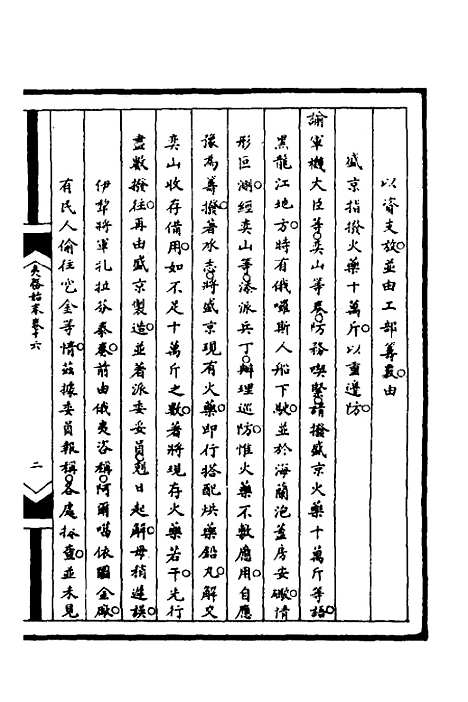 以資支放並由工部籌裁由
盛京指撥火藥十萬斤以重邊防
諭軍機大臣等奕山等奏防務喫緊請撥盛京火藥十萬斤等語
黑龍江地方時有俄囉斯人船下駛並於海蘭泡蓋房安礮情
形叵測經奕山等添派兵丁辦理巡防惟火藥不敷應用自應
豫為籌撥著承志將盛京現有火藥即行搭配烘藥鉛丸解交
奕山收存備用如不足十萬斤之數著將現存火藥若干先行
盡數撥往再由盛京製造並著派委妥員剋日起解毋稍遲誤
伊犂將軍札拉芬泰奏前由俄夷咨稱阿爾噶依圖金廠
有民人偷往挖金等情茲據委員報稱各處採查並未見
夷務始末卷十六
二